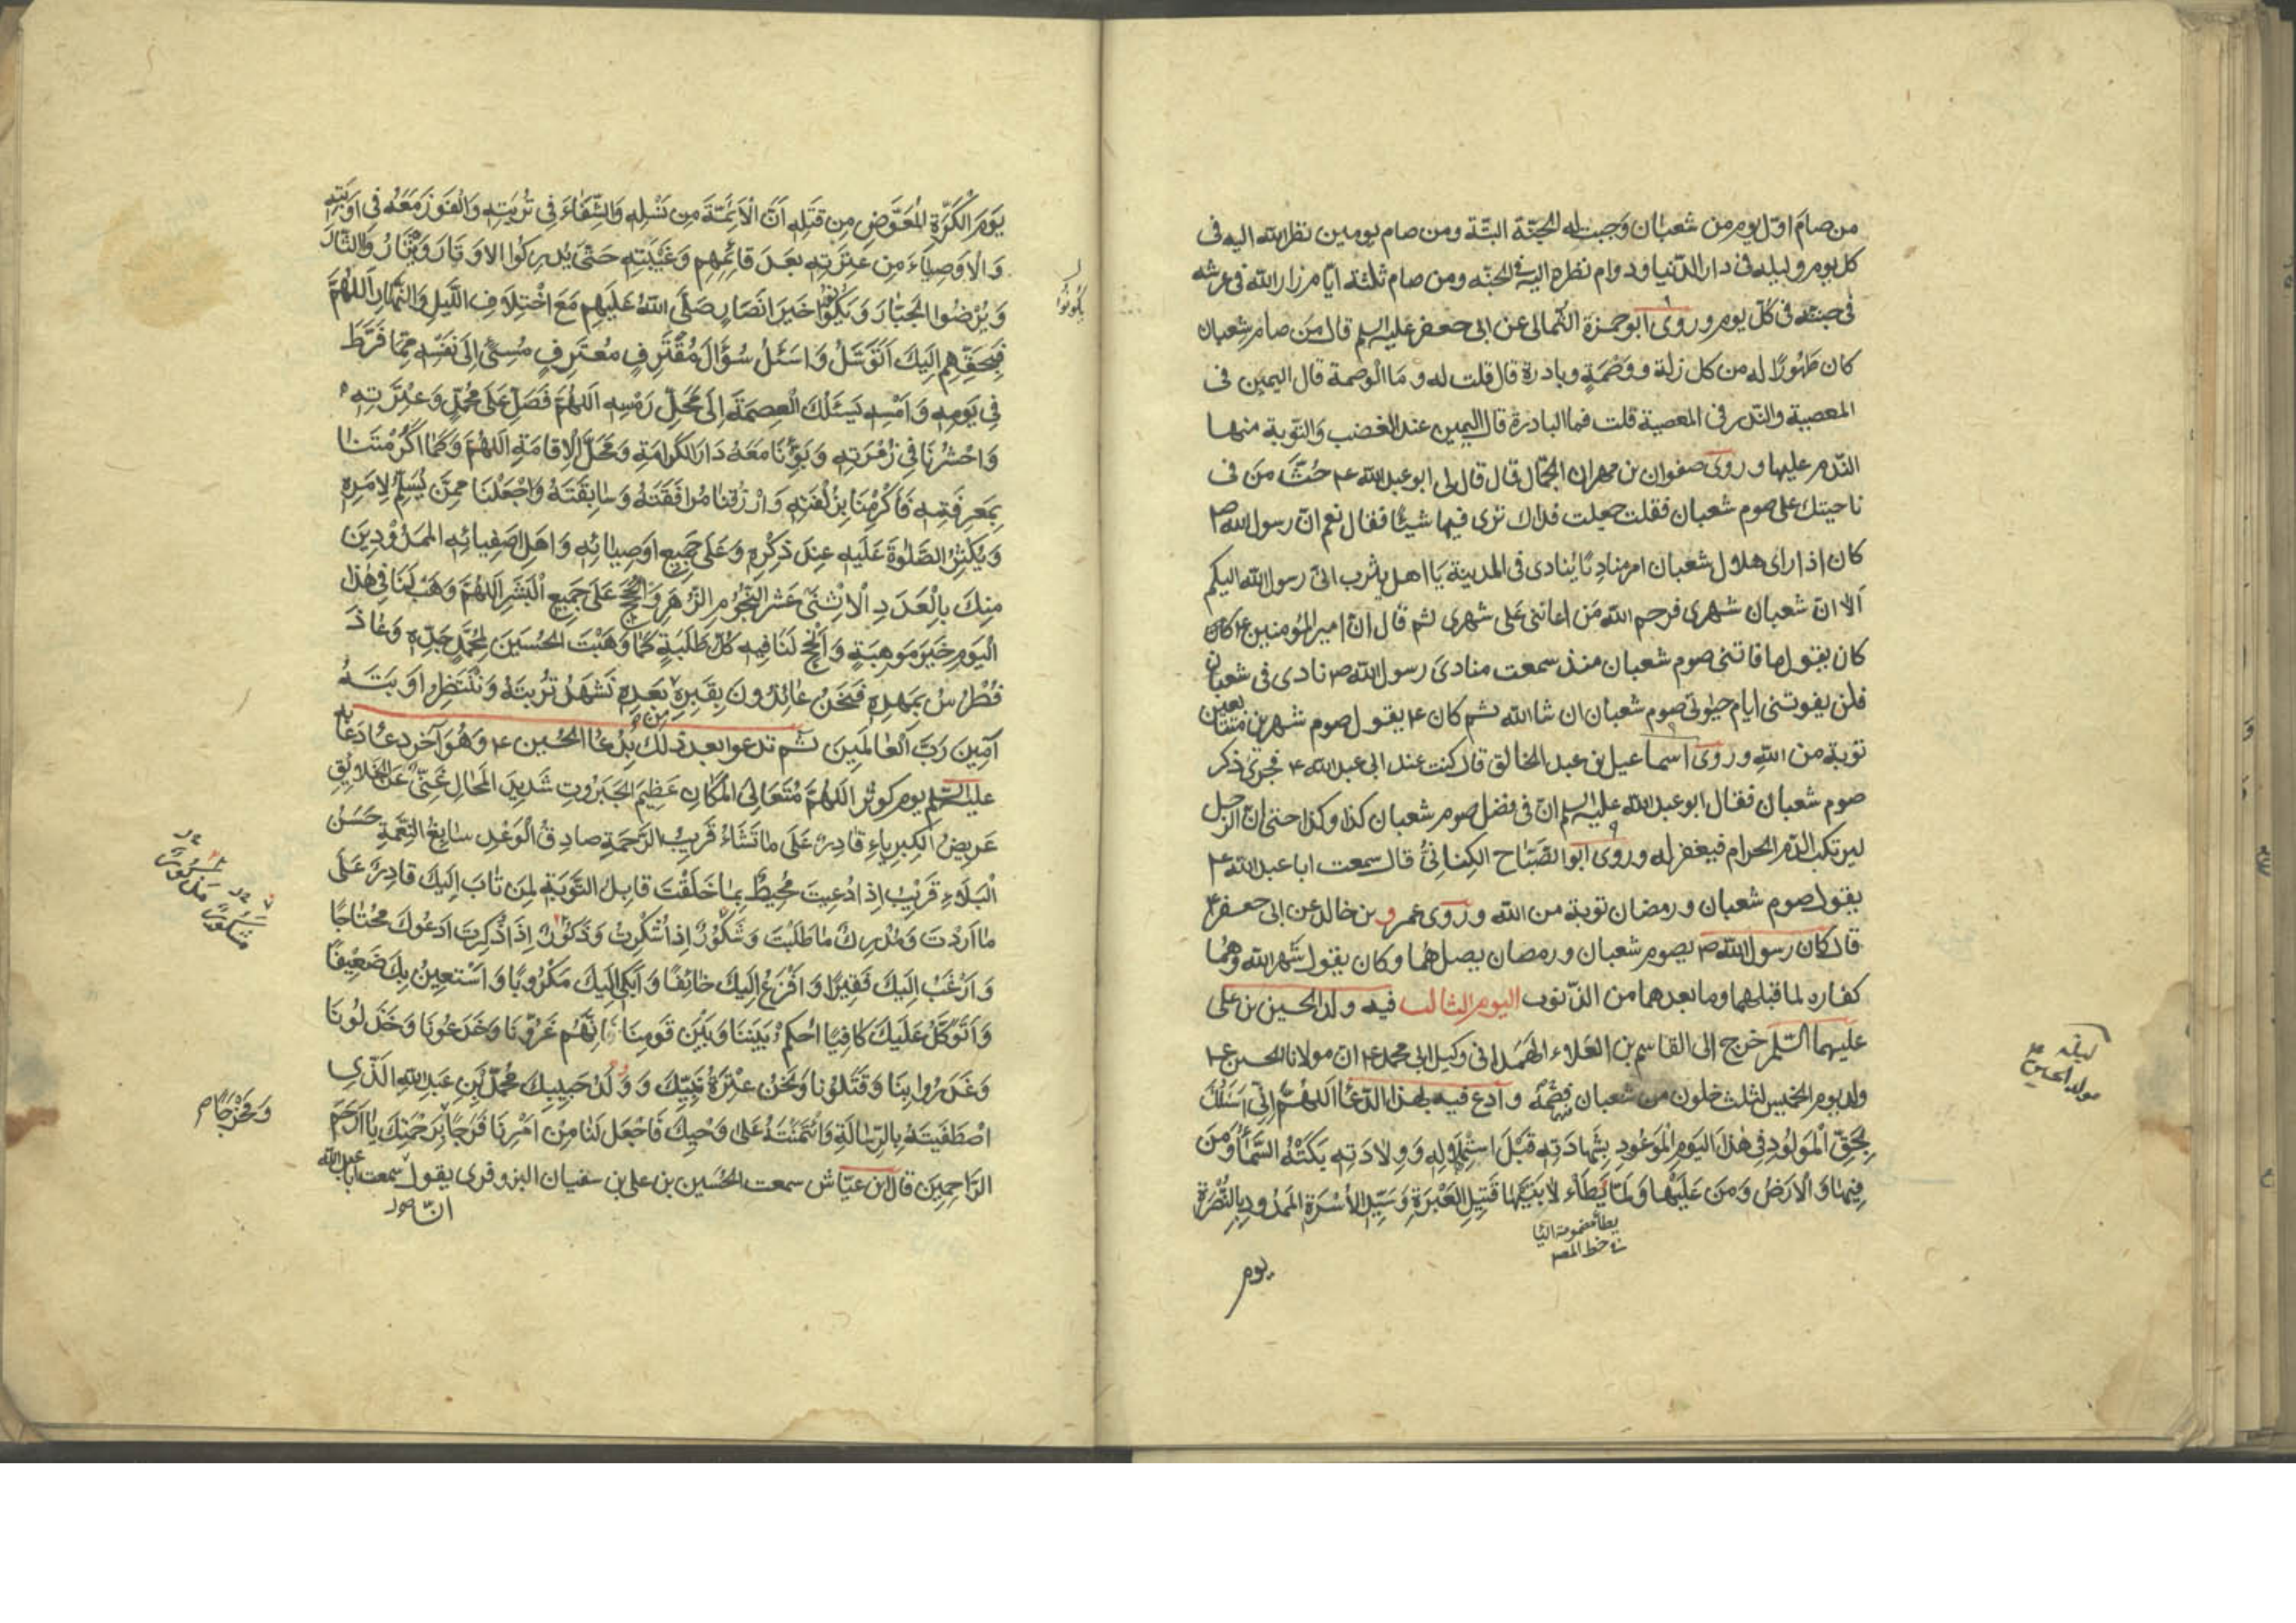 من صام اوّل يوم من شعبان وجبت له الجنّة البتّة ومن صام يومين نظر الله اليه فى
كل يوم وليلة فى دار الدّنيا ودوام نظره اليه فى الجنّه ومن صام ثلثة ايّام زار الله فى عرشه
فى جنته فى كلّ يوم وروى ابو حمزة الثمالى عن ابى جعفر عليه السلم قال مَن صام شعبان
كان طَهُورًا له من كل زلة ووَصْمَةٍ وبادرة قال قلت له وما الوصمة قال اليمين فى
المعصية والنذر فى المعصية قلت فما البادرة قال اليمين عند الغضب والتوبة منها
الندم عليها وروى صفوان بن مهران الجمّال قال قال لى ابو عبد الله ع حُثَّ مَن فى
ناحيتك على صوم شعبان فقلت جعلت فداك ترى فيها شيئًا فقال نعم انّ رسول الله ص
كان اذا راى هلال شعبان امر مناديًا ينادى فى المدينة يا اهل يثرب انى رسول الله اليكم
اَلا انّ شعبان شهرى فرحم الله مَن اعاننى على شهرى ثم قال انّ امير المؤمنين ع كان
كان يقول ما فاتنى صوم شعبان منذ سمعت منادىَ رسول الله ص نادى فى شعبان
فلن يفوتنى ايام حيوتى صوم شعبان ان شا الله ثم كان ع يقول صوم شهرين متتابعين
توبة من الله وروى اسماعيل بن عبد الخالق قال كنت عند ابى عبد الله ع فجرى ذكر
صوم شعبان فقال ابو عبد الله عليه السلم انّ فى فضل صوم شعبان كذا وكذا حتى انّ الرجل
ليرتكب الدّم الحرام فيغفر له وروى ابو الصّبّاح الكِنانىّ قال سمعت ابا عبد الله ع
يقول صوم شعبان ورمضان توبة من الله وروى عمرو بن خالد عن ابى جعفر ع
قال كان رسول الله ص يصوم شعبان ورمضان يصلهما وكان يقول شهر الله وهما
كفاره لما قبلهما وما بعدهما من الذّنوب اليوم الثالث فيه ولد الحسين بن على
عليهما السّلم خرج الى القاسم بن العلاء الهَمْدانى وكيل ابى محمد ع انّ مولانا الحسين ع
ولد يوم الخميس لثلث خلون من شعبان فصُمْهُ وادع فيه بهذا الدّعا اَللّهمّ اِنّى اَسئَلُكَ
بِحَقِّ الْمَوْلُودِ فِى هٰذَا اليَوْمِ الْمَوعُودِ بِشَهادَتِهِ قَبْلَ اسْتِهْلالِهِ وَوِلادَتِهِ بَكَتْهُ السَّمآءُ وَمَنَ
فِيها وَالْاَرْضُ وَمَن عَلَيْها وَلَمّا يَطَأء لابَتَيْها قَتِيلِ العَبْرَةِ وَسَيِّدِ الأُسْرَةِ المَمدُودِ بِالنُّصْرَةِ
يطأ مضمومة اليا
خط المص
يوم
ليلة ٣
مولد الحسين
يَومَ الْكَرَّةِ الْمُعَوَّضِ مِن قَتْلِهِ اَنَّ الْاَئِمَّةَ مِن نَسْلِهِ وَالشِّفاءَ فِى تُربَتِهِ وَالْفَوْزَ مَعَهُ فى اَوْبَتِهِ
وَالْاَوْصِياءَ مِن عِتْرَتِهِ بَعدَ قائِمِهِم وَغَيْبَتِهِ حَتّى يُدرِكُوا الاَوْتارَ وَيَثْاَرُوا الثّارَ
وَيُرْضُوا الْجَبّارَ وَيَكُونُوا خَيرَ اَنْصارٍ صَلَّى اللهُ عَلَيهِم مَعَ اخْتِلافِ اللَّيلِ وَالنَّهارِ اَللّهُمَّ
فَبِحَقِّهِم اِلَيكَ اَتَوَسَّلُ وَاَسئَلُ سُؤالَ مُقتَرِفٍ مُعتَرِفٍ مُسِىءٍ اِلى نَفسِهِ مِمّا فَرَّطَ
فِى يَومِهِ وَاَمسِهِ يَسئَلُكَ الْعِصمَةَ اِلى مَحَلِّ رَمْسِهِ اَللّهُمَّ فَصَلِّ عَلى مُحَمَّدٍ وَعِتْرَتِهِ
وَاحْشُرنَا فى زُمرَتِهِ وَبَوِّئْنا مَعَهُ دَارَ الكَرامَةِ وَمَحَلَّ الْاِقامَةِ اَللّهُمَّ وَكَما اَكرَمْتَنا
بِمَعرِفَتِهِ فَاَكْرِمنا بِزُلْفَتِهِ وَارْزُقنا مُرافَقَتَهُ وَسابِقَتَهُ وَاجْعَلنا مِمَّن يُسَلِّمُ لِاَمرِهِ
وَيُكثِرُ الصَّلوةَ عَلَيهِ عِندَ ذِكْرِهِ وَعَلى جَميعِ اَوصِيائِهِ وَاَهلِ اصَفِيائِهِ الممدُودِينَ
مِنكَ بِالْعَدَدِ الْاِثْنَى عَشَرَ النُّجُومِ الزُّهَرِ وَالْحُجَجِ عَلى جَمِيعِ الْبَشَرِ اَللّهُمَّ وَهَب لَنا فى هٰذا
الْيَومِ خَيرَ مَوهِبَةٍ وَاَنجِح لَنا فِيهِ كُلَّ طَلِبَةٍ كَما وَهَبْتَ الحُسَينَ لِمُحَمَّدٍ جَدِّهِ وَعاذَ
فُطْرُسُ بِمَهدِهِ فَنَحنُ عائِذُونَ بِقَبرِهِ مِن بَعدِهِ نَشهَدُ تُربَتَهُ وَنَنْتَظِرُ اَوبَتَهُ
آمِينَ رَبَّ الْعالَمِينَ ثم تدعوا بعد ذلك بدعا الحُسين ع وهُوَ آخر دعا دعا به
عليه السّلم يوم كوثر اَللّهُمَّ مُتَعالِىَ المَكانِ عَظِيمَ الجَبَرُوتِ شَدِيدَ المَحالِ غَنِىٌّ عَنِ الخَلايِقِ
عَرِيضُ الكِبرِياءِ قادِرٌ عَلى ما تَشاءُ قَرِيبُ الرَّحمَةِ صادِقُ الْوَعدِ سابِغُ النِّعمَةِ حَسَنُ
الْبَلاءِ قَرِيْبٌ اِذا دُعِيتَ مُحِيطٌ بِما خَلَقْتَ قابِلُ التَّوبَةِ لِمَن تابَ اِلَيكَ قادِرٌ عَلى
ما اَرَدْتَ وَمُدرِكٌ ما طَلَبْتَ وَشَكُورٌ اِذا شُكِرْتَ وَذَكُورٌ اِذا ذُكِرتَ اَدعُوكَ مُحتاجًا
وَاَرْغَبُ اِلَيكَ فَقِيرًا وَاَفْزَعُ اِلَيكَ خائِفًا وَاَبكى اِلَيكَ مَكْرُوبًا وَاَسْتَعِينُ بِكَ ضَعِيفًا
وَاَتَوَكَّلُ عَلَيكَ كافِيًا اُحكُمْ بَينَنا وَبَيْنَ قَومِنا فَاِنَّهُم غَرُّونا وَخَدَعُونا وَخَذَلُونا
وَغَدَرُوا بِنا وَقَتَلُونا وَنَحنُ عِتْرَةُ نَبِيِّكَ وَوُلْدُ حَبِيبِكَ مُحَمَّدِ بنِ عَبدِ اللهِ الَّذى
اصْطَفَيتَهُ بِالرِّسالَةِ وَائْتَمَنْتَهُ عَلى وَحْيِكَ فَاجْعَل لَنا مِنْ اَمْرِنا فَرَجًا بِرَحْمَتِكَ يا اَرحَمَ
الرّاحِمِينَ قال ابن عيّاش سمعت الحُسَين بن على بن سفيان البزوفرى يقول سمعت ابا عبد الله
يكونوا
وَمَخرَجًا م